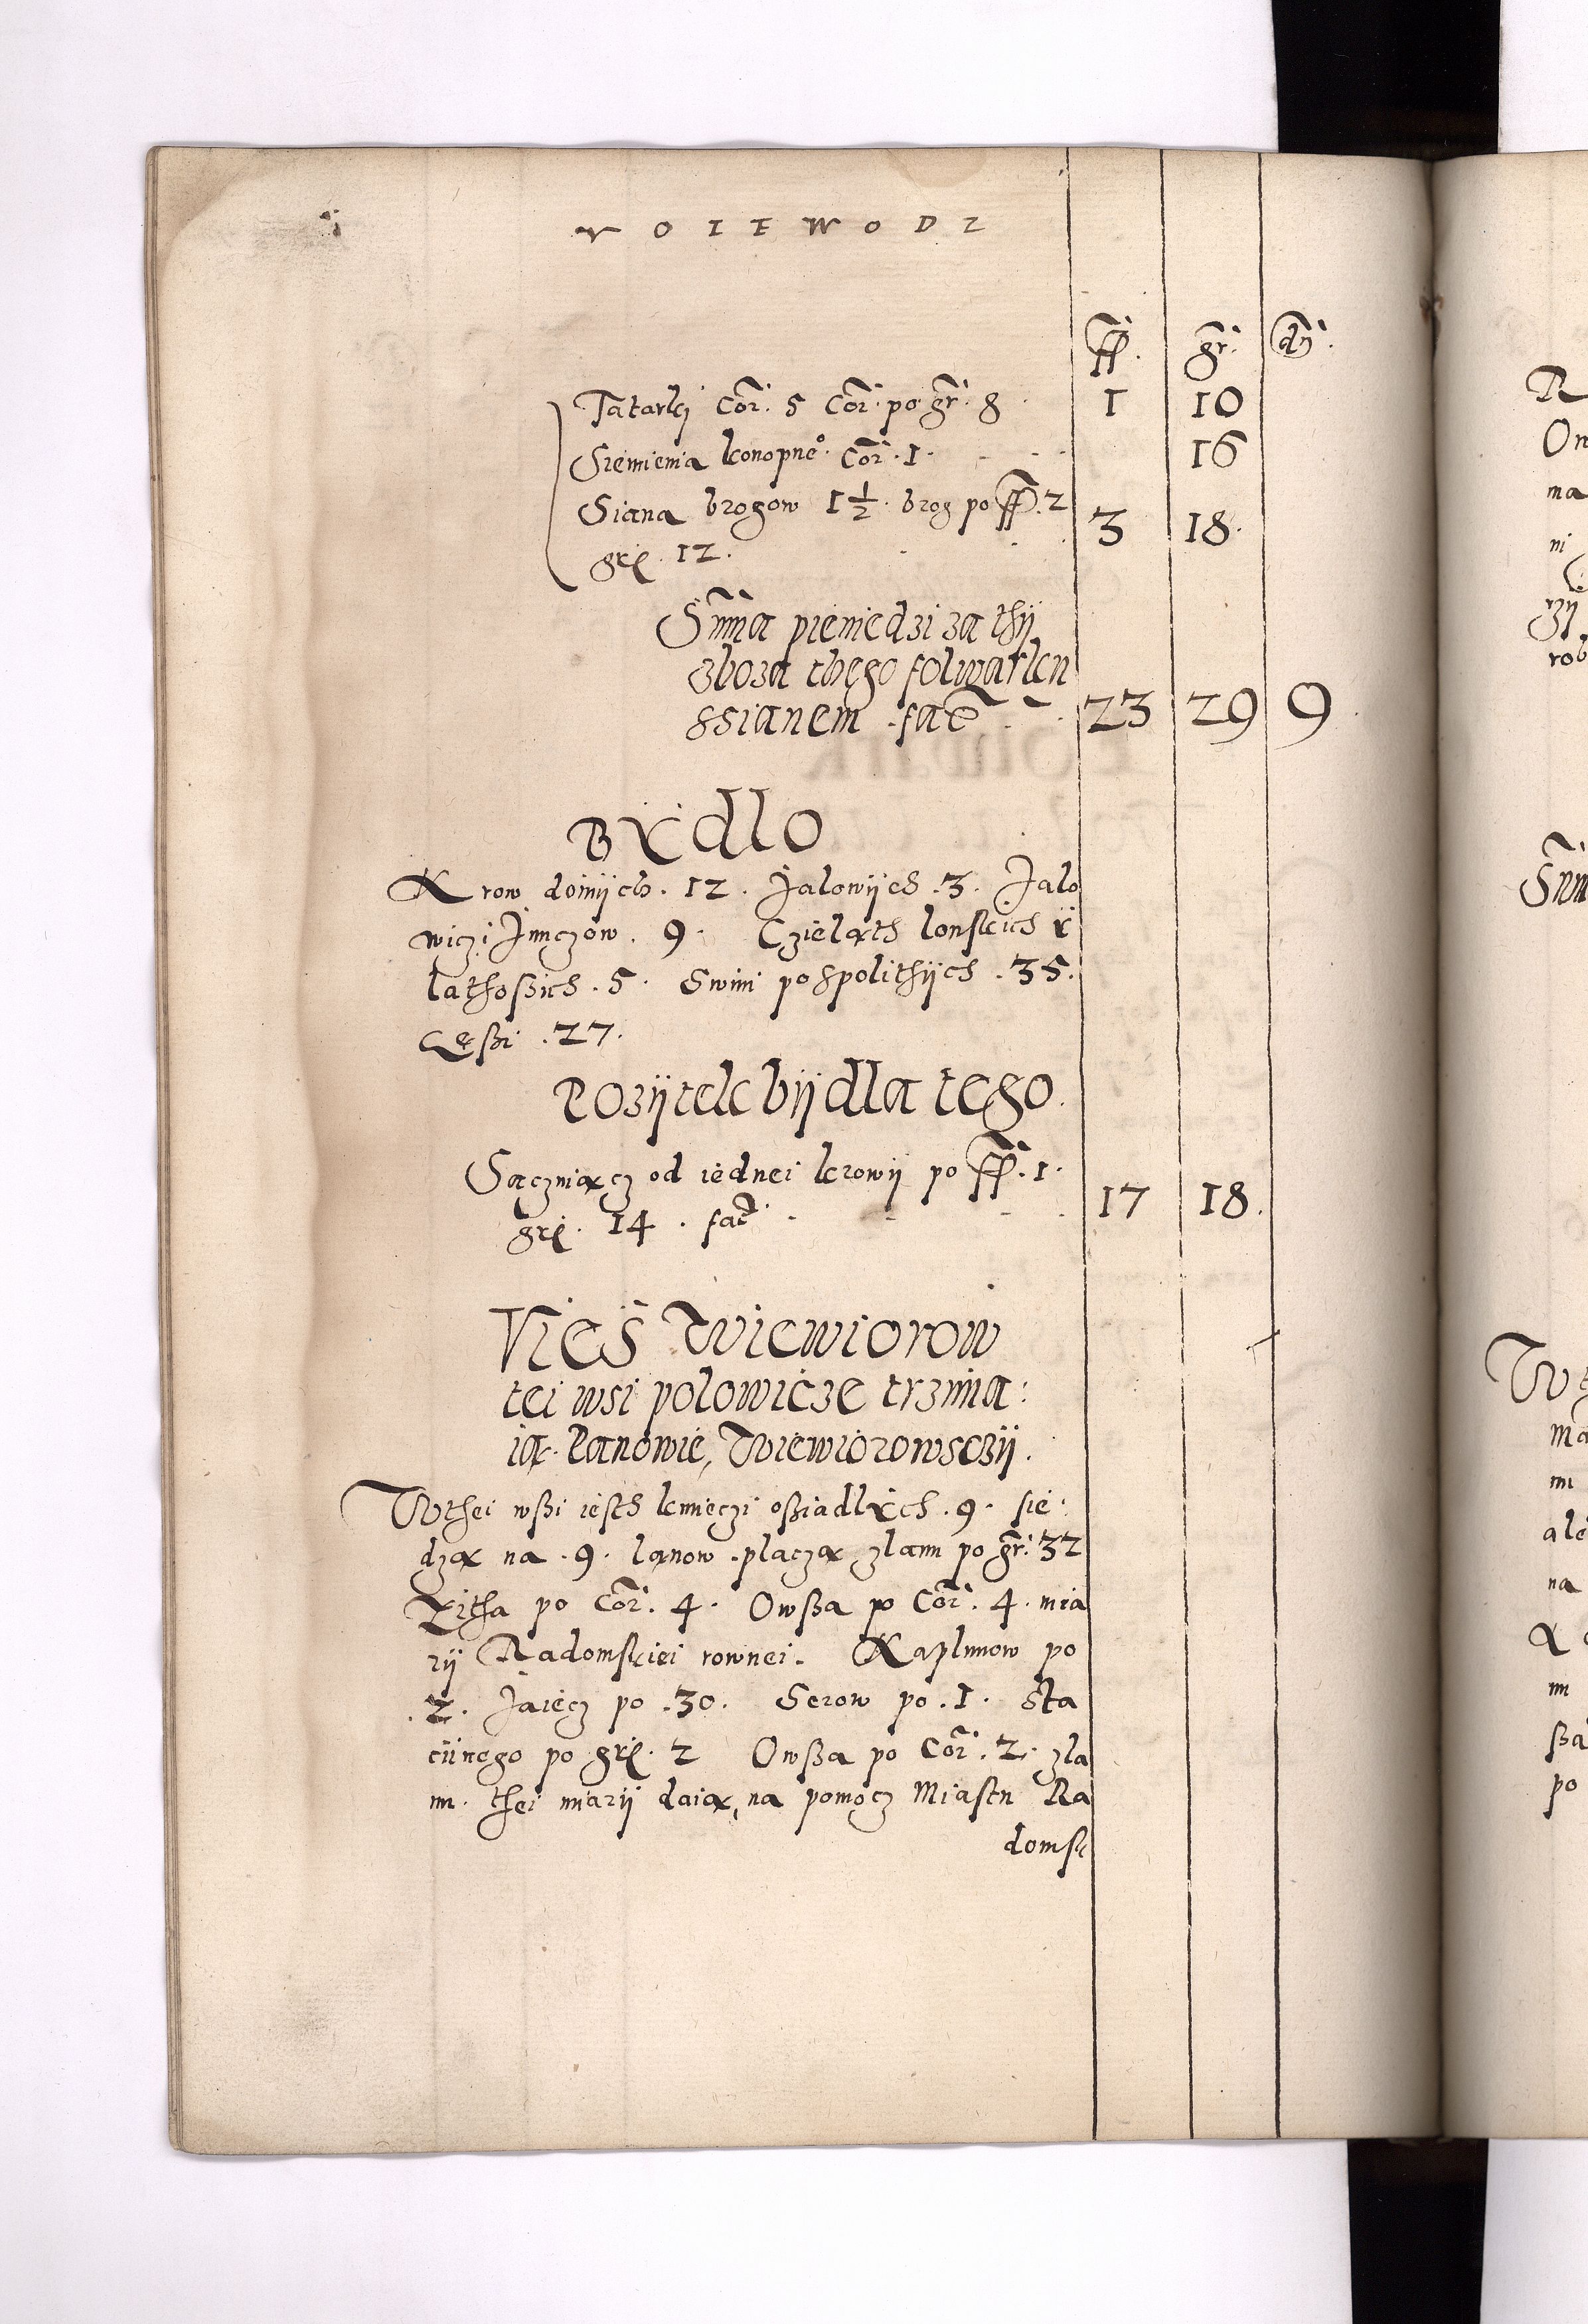 V O I E W O D Z
ff. gr. dn.
Tatarki Cor. 5 Cor. po gr. 8 1 10
Siemienia konopneo. Cor. 1. 16
Siana brogow 1 1/2. brog po ff. 2 3 18.
grʒ. 12.
Summa pieniedzi za thÿ
zboza thego folwarku
ssianem fac 23 29 9
BYdlo
Krow doinÿch. 12. Jalowÿch .3. Jalo
wiczi Junczow. 9. Czieląth lonskich ÿ
lathoßich .5. Swini pospolithÿch .35.
Gęßi .27.
Pozÿtek bÿdla tego.
Sączniącz od iednei krowÿ po ff. 1.
grʒ. 14. fac. 17 18.
Vieś Wiewiorow
tei wsi polowicze trzima:
ią. Panowie, Wiewiorowsczÿ.
W thei wßi iesth kmieczi oßiadlÿch .9. sie:
dzą na .9. lanow .placzą złanu po gr. 32
Zitha po Cor. 4. Owßa po Cor. 4. mia
rÿ Radomskiei rownei. Kaplunow po
.2. Jaiecz po .30. Serow po .1. Sta
ciinego po grʒ. 2 Owßa po Cor. 2. zla
nu. thei miarÿ daią, na pomocz Miastu Ra
domsk